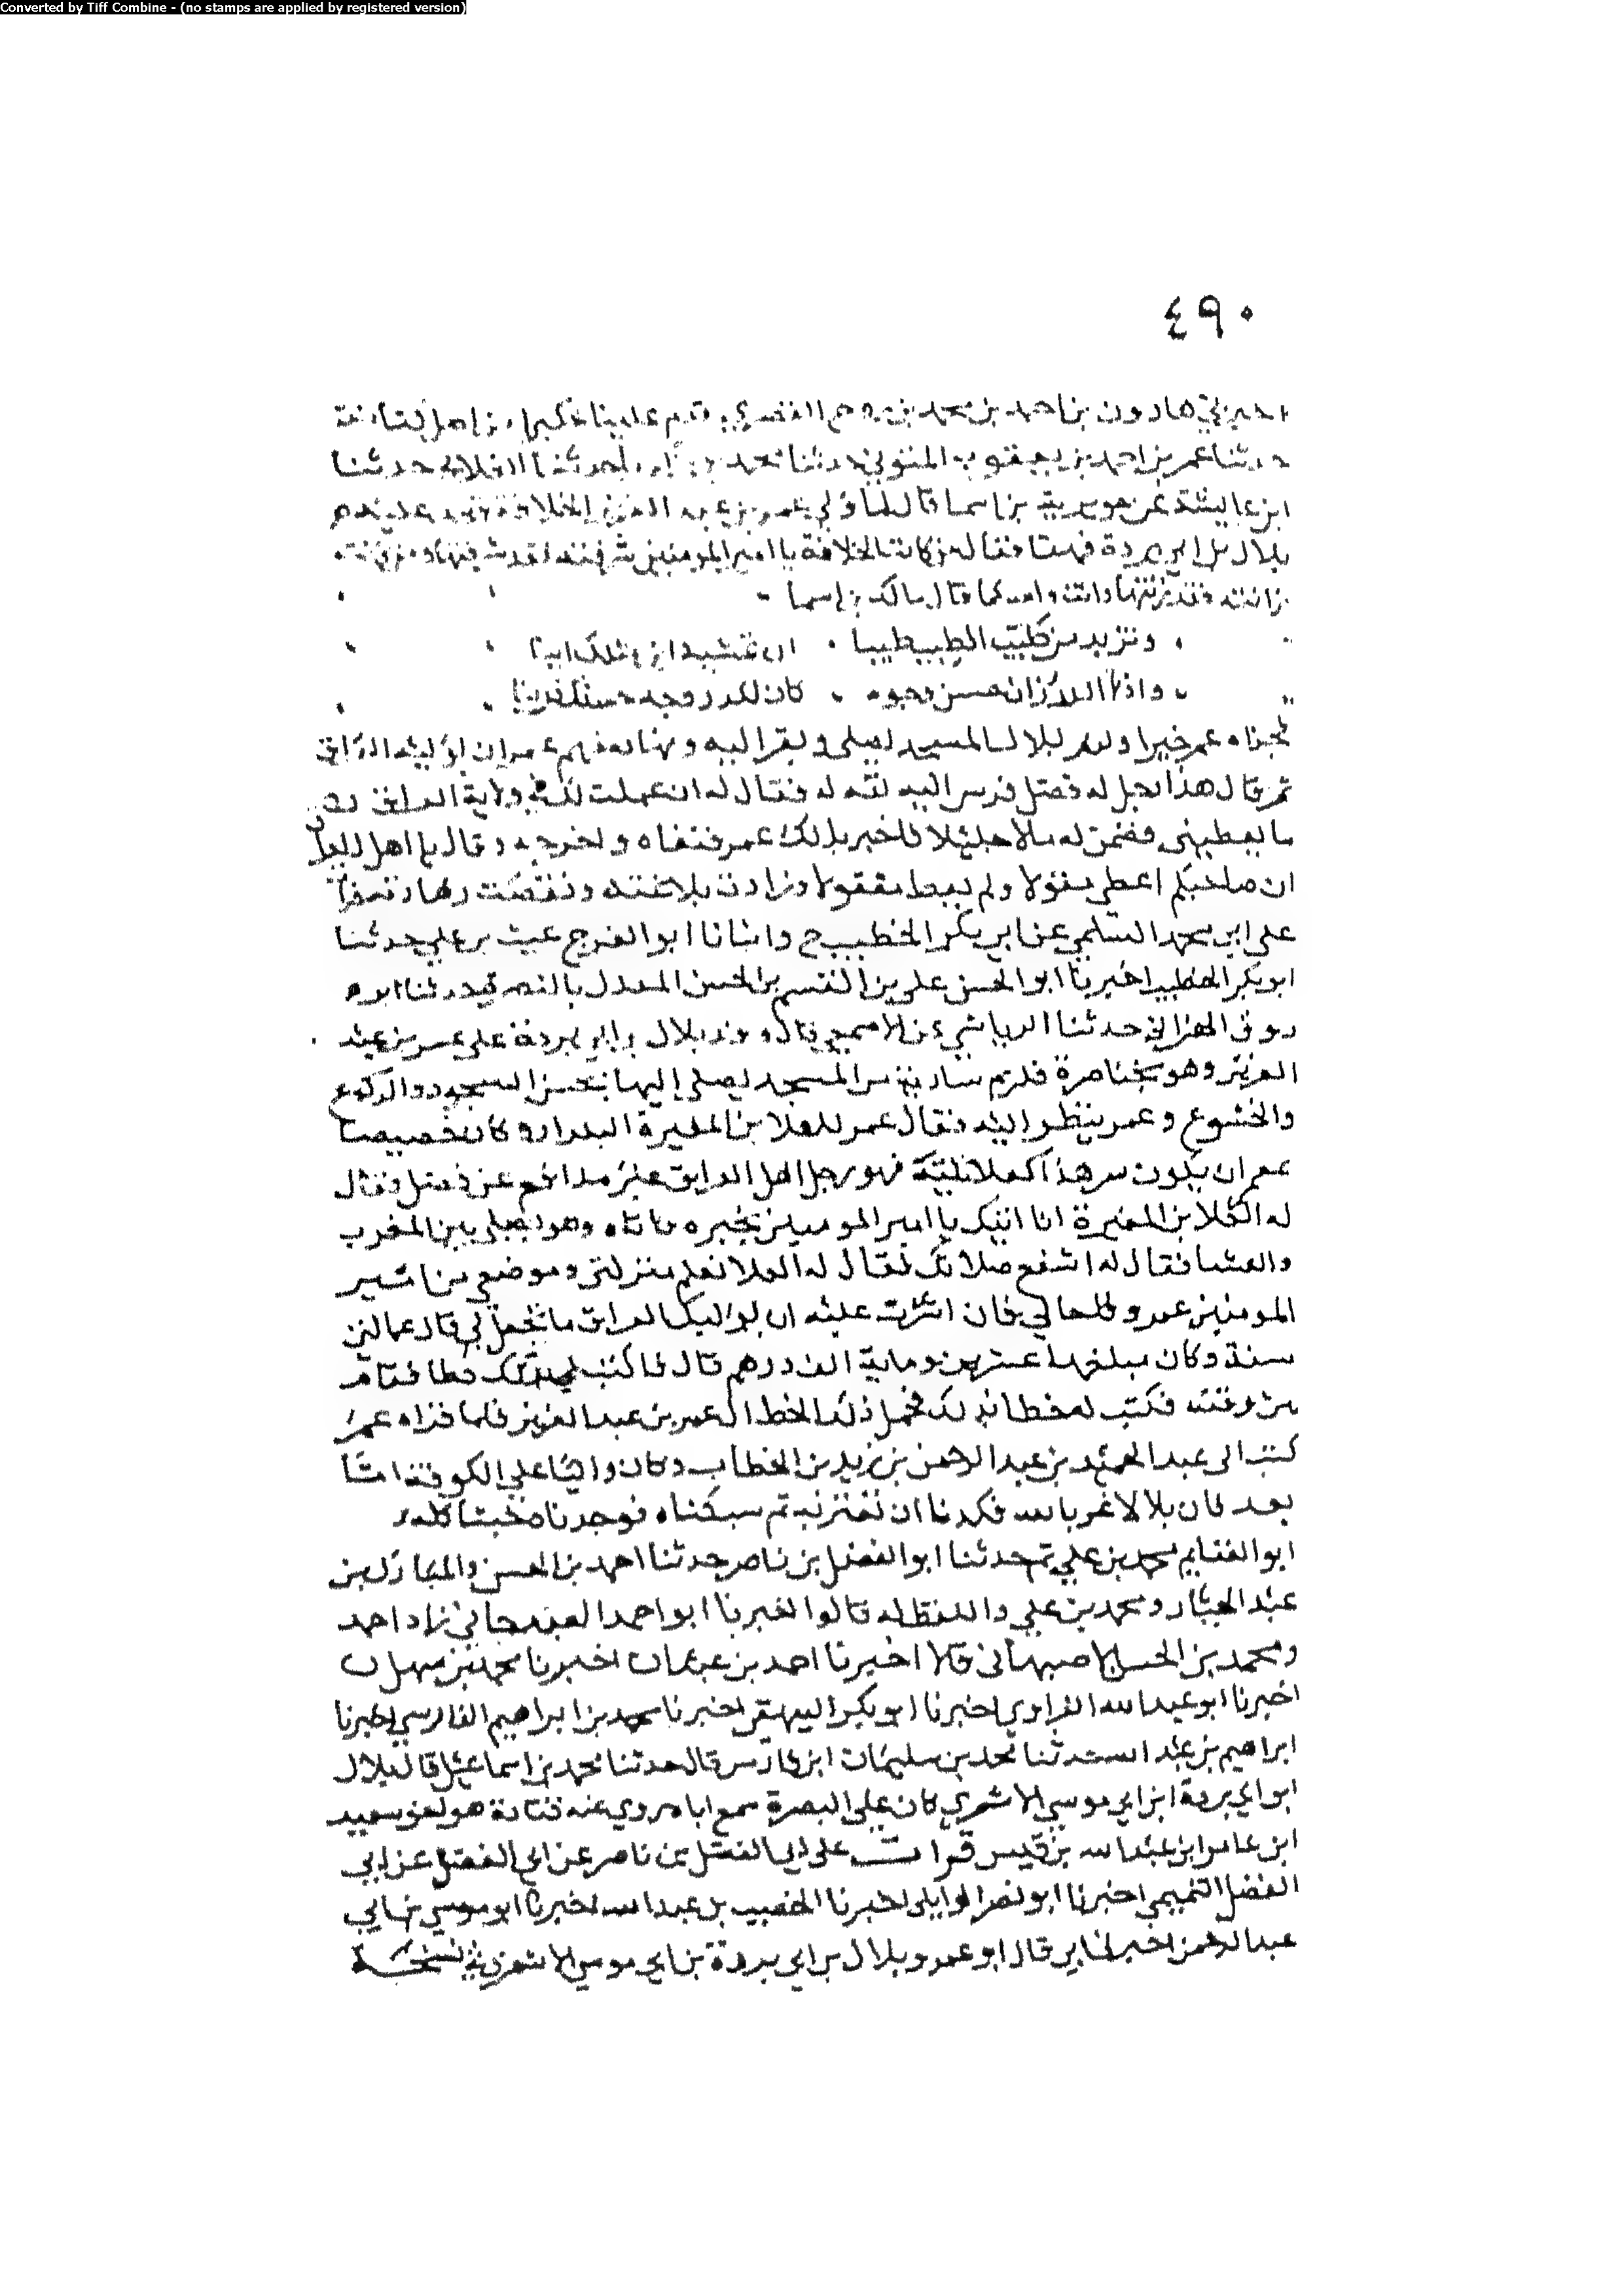 Converted by Tiff Combine - (no stamps are applied by registered version)
٤٩٠
هارون بن احمد بن محمد بن قدم علينا من اهل
حدثنا عمر بن احمد بن يعقوب المتوثي حدثنا محمد حدثنا الغلابي حدثنا
ابن عايشة عن جويرية بن اسما قال لما ولي عمر بن عبد العزيز الخلافة وفد عليه
بلال بن ابي بردة فهناه فقال من كانت الخلافة يا امير المومنين شرفته فقد شرفتها ومن كانت
زانته فقد زنتها وانت والله كما قال مالك بن اسما
وتزيد من طيب الطيب طيبا ان تمسيه اين مثلك اينا
واذا الدر زان حسن وجوه كان للدر وجه حسنك زينا
فجزاه عمر خيرا ولزم بلال المسجد يصلي ويقرا ليله ونهاره فهم عمر ان يوليه العراق
ثم قال هذا رجل له فضل فدس اليه ثقه له فقال له ان عملت لك في ولاية العراق
ما تعطيني فضمن له مالا جليلا فاخبر بذلك عمر فنفاه واخرجه وقال يا اهل العراق
ان صاحبكم اعطي مقولا ولم يعط معقولا وزادت بلاغته ونقصت زهادته
علي ابي محمد السلمي عن ابي بكر الخطيب ح وانبانا ابو الفرج غيث بن علي حدثنا
ابو بكر الخطيب اخبرنا ابو الحسن علي بن القسم بن الحسن المعدل بالبصرة حدثنا ابو
روق الهزاني حدثنا الرياشي عن الاصمعي قال وفد بلال بن ابي بردة علي عمر بن عبد
العزيز وهو بخناصرة فلزم سارية من المسجد يصلي اليها يحسن السجود والركوع
والخشوع وعمر ينظر اليه فقال عمر للعلا بن المغيرة البندار وكان خصيصا
بعمر ان يكون سر هذا كعلانيته فهو رجل اهل العراق غير مدافع عن فضل فقال
له العلا بن المغيرة انا اتيك يا امير المومنين بخبره فاتاه وهو يصلي بين المغرب
والعشا فقال له اشفع صلاتك فقال له العلا تعلم منزلتي وموضعي من امير
المومنين عمر وحالي فان اشرت عليه ان يوليك العراق ما تجعل لي قال عمالتي
سنة وكان مبلغها عشرين وماية الف درهم قال فاكتب لي بذلك خطا فقام
من وقته فكتب له خطا بذلك فحمل ذلك الخط الي عمر بن عبد العزيز فلما قراه عمر
كتب الي عبد الحميد بن عبد الرحمن بن زيد بن الخطاب وكان واليا علي الكوفة اما
بعد فان بلالا غرنا بالله فكدنا ان نغتر به ثم سبكناه فوجدناه خبثا كله
ابو الغنايم محمد بن علي ثم حدثنا ابو الفضل بن ناصر حدثنا احمد بن الحسن والمبارك بن
عبد الجبار ومحمد بن علي واللفظ له قالوا اخبرنا ابو احمد الغندجاني زاد احمد
ومحمد بن الحسن الاصبهاني قالا اخبرنا احمد بن عبدان اخبرنا محمد بن سهل ح
اخبرنا ابو عبد الله الفراوي اخبرنا ابو بكر البيهقي اخبرنا محمد بن ابراهيم الفارسي اخبرنا
ابراهيم بن عبد الله حدثنا محمد بن سليمان ابن فارس قال حدثنا محمد بن اسماعيل قال بلال
ابو ابي بردة ابن ابي موسي الاشعري كان علي البصرة سمع اباه روي عنه قتادة هو اخو سعيد
ابن عامر ابن عبد الله بن قيس قرات علي ابي الفضل بن ناصر عن ابي الفضل عن ابي
الفضل التميمي اخبرنا ابو نصر الوايلي اخبرنا الخصيب بن عبد الله اخبرنا ابو موسي بن ابي
عبد الرحمن اخبرني ابي قال ابو عمرو بلال بن ابي بردة بن ابي موسي الاشعري في نسخة